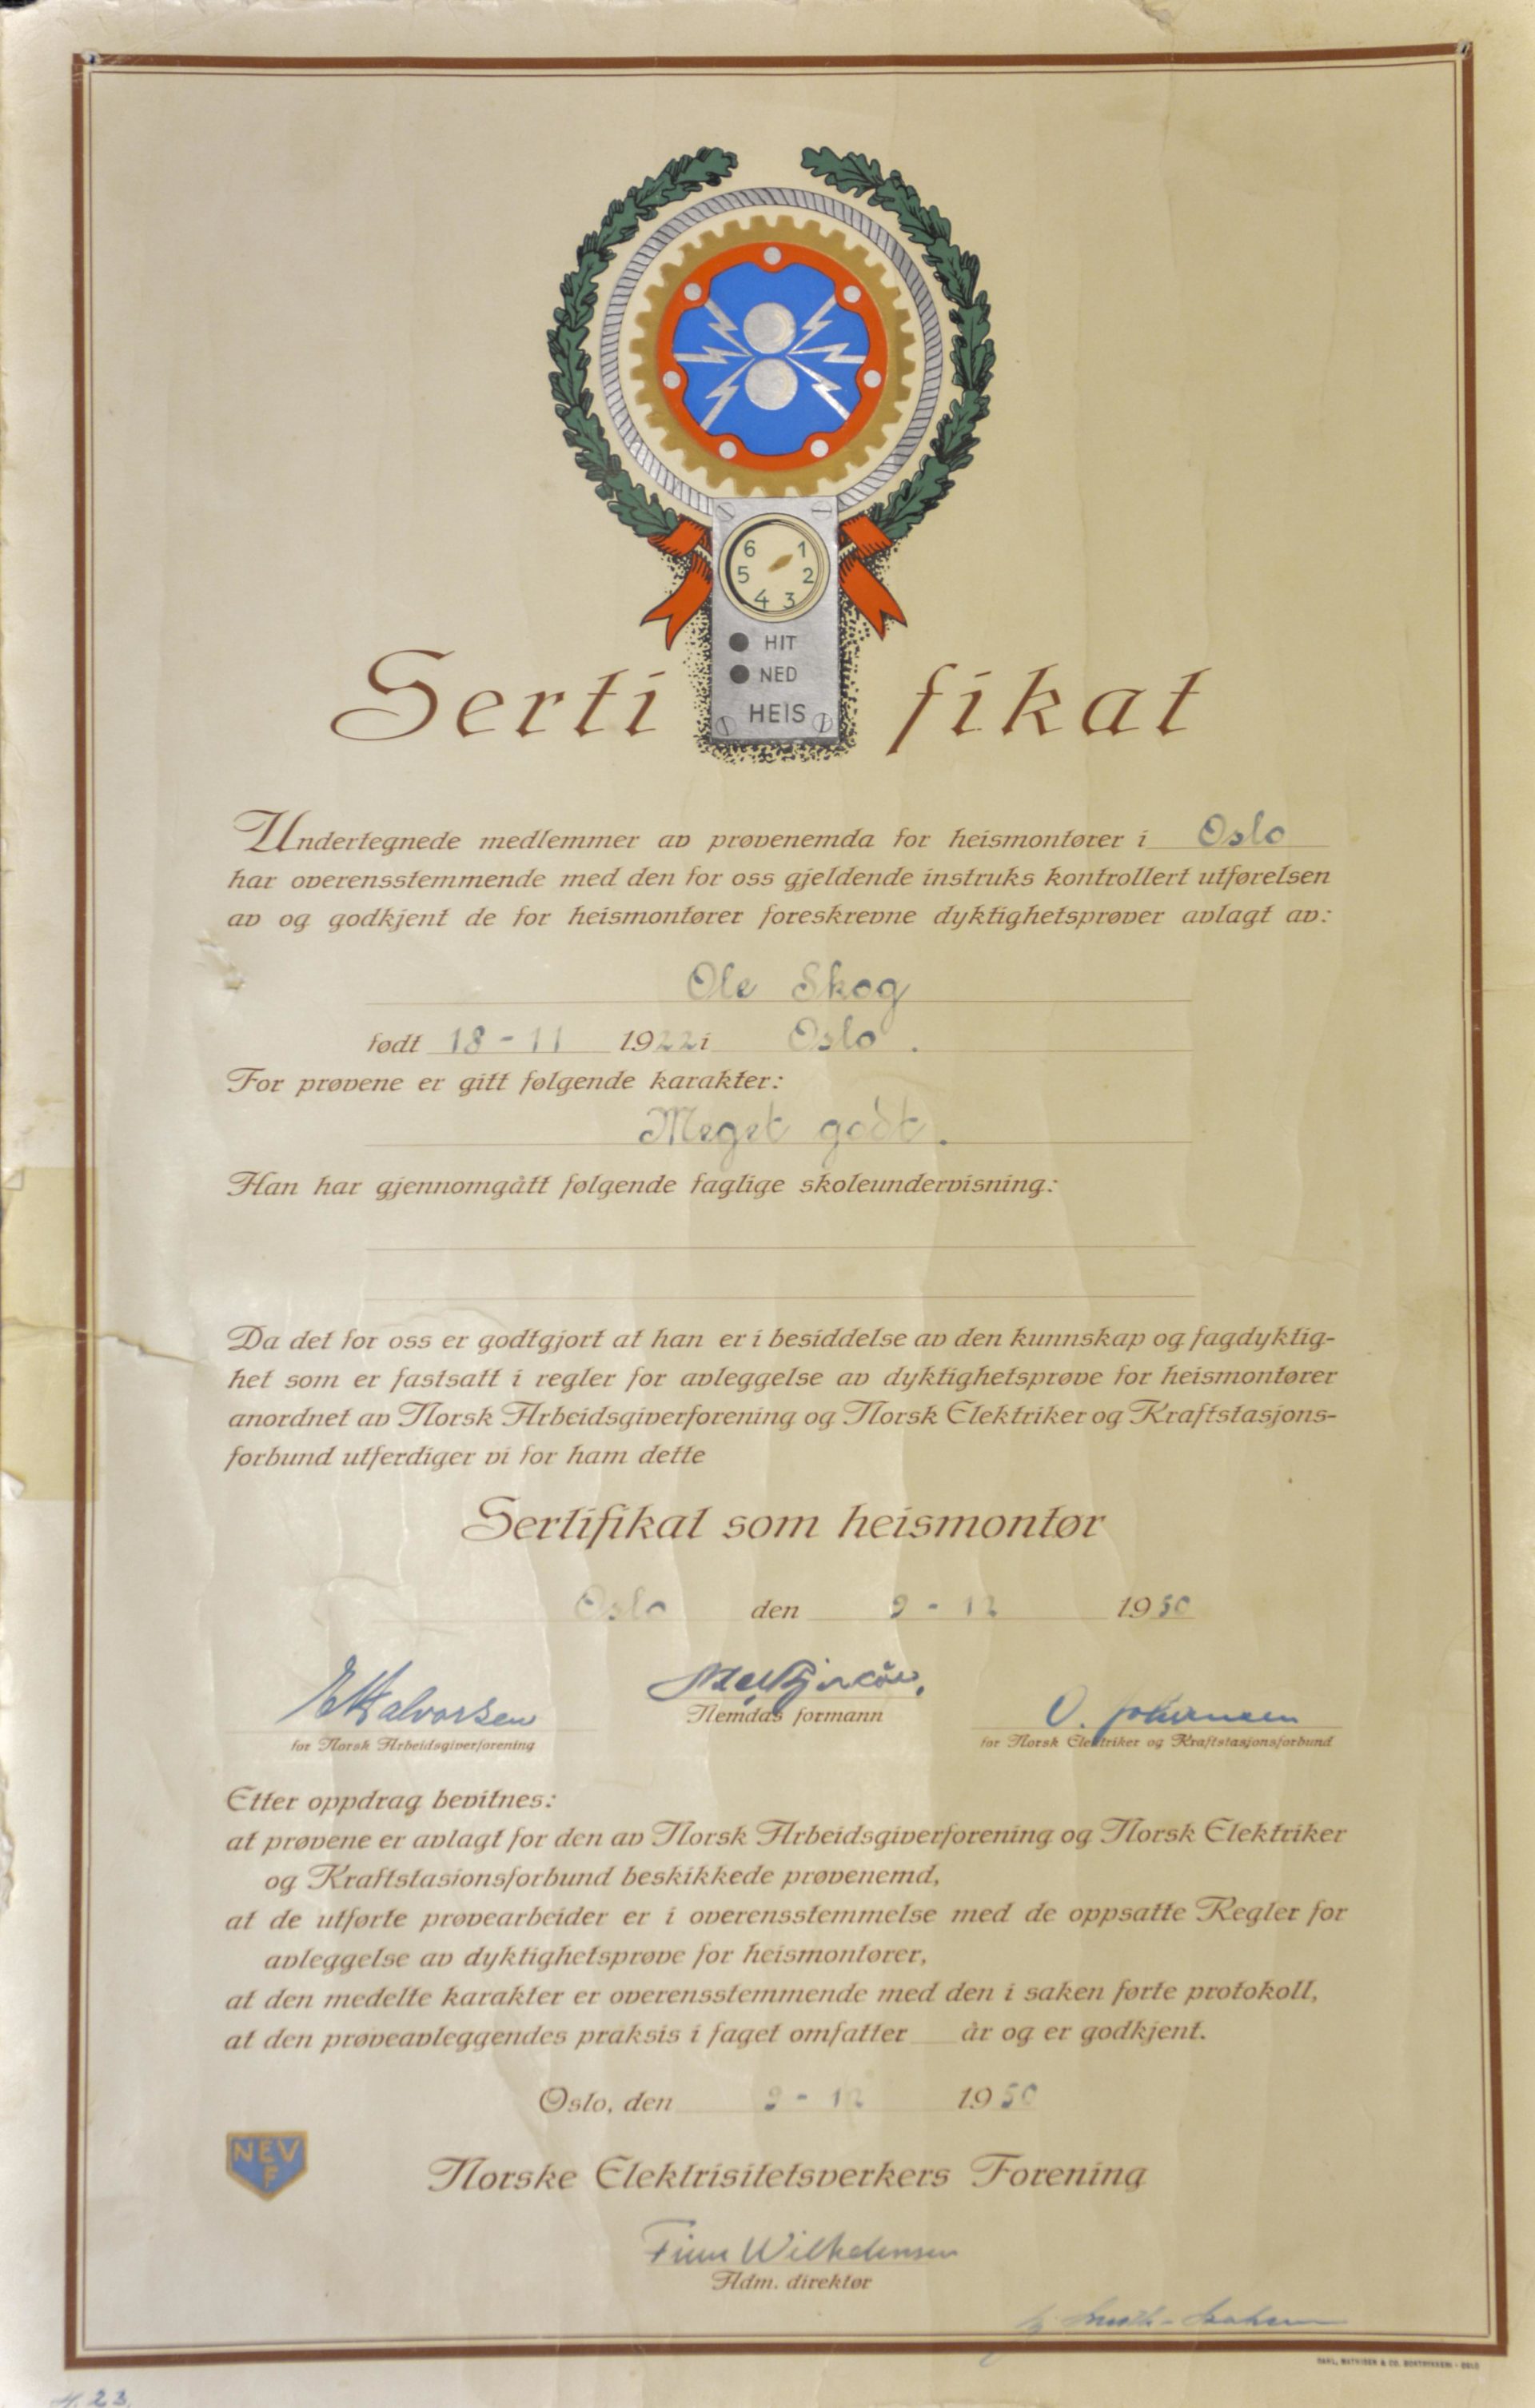 6 1
5 2
4 3
HIT
NED
HEIS
Sertifikat
Undertegnede medlemmer av prøvenemda for heismontører i Oslo
har overensstemmende med den for oss gjeldende instruks kontrollert utførelsen
av og godkjent de for heismontører foreskrevne dyktighetsprøver avlagt av:
Ole Skog
født 18-11 1922 i Oslo.
For prøvene er gitt følgende karakter:
Meget godt.
Han har gjennomgått følgende faglige skoleundervisning:
Da det for oss er godtgjort at han er i besiddelse av den kunnskap og fagdyktig-
het som er fastsatt i regler for avleggelse av dyktighetsprøve for heismontører
anordnet av Norsk Arbeidsgiverforening og Norsk Elektriker og Kraftstasjons-
forbund utferdiger vi for ham dette
Sertifikat som heismontør
Oslo den 9-12 1950
E Halvorsen
for Norsk Arbeidsgiverforening
Nemdas formann
O. Johansen
for Norsk Elektriker og Kraftstasjonsforbund
Etter oppdrag bevitnes:
at prøvene er avlagt for den av Norsk Arbeidsgiverforening og Norsk Elektriker
og Kraftstasionsforbund beskikkede prøvenemd,
at de utførte prøvearbeider er i overensstemmelse med de oppsatte Regler for
avleggelse av dyktighetsprøve for heismontører,
at den medelte karakter er overensstemmende med den i saken førte protokoll,
at den prøveavleggendes praksis i faget omfatter år og er godkjent.
Oslo, den 9-12 1950
NEVF
Norske Elektrisitetsverkers Forening
Finn Wilhelmsen
Adm. direktør
DAHL, MATHISEN & CO. BOKTRYKKERI - OSLO
23